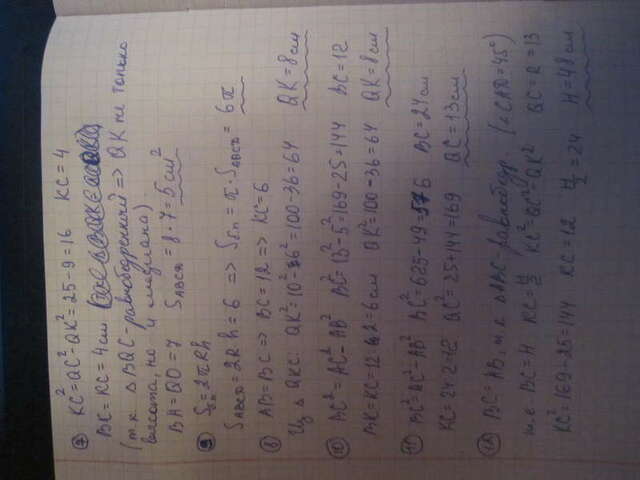 7) KC² = QC² - QK² = 25 - 9 = 16 KC = 4
BK = KC = 4 см
(т.к. △BQC - равнобедренный => QK не только
высота, но и медиана)
BA = QO = 7 S_ABCD = 8 · 7 = 5 см²
9) Sбп = 2πRh
S_ABCD = 2R·h = 6 => Sбп = π · S_ABCD = 6π
8) AB = BC => BC = 12 => KC = 6
Из △ QKC: QK² = 10² - 6² = 100 - 36 = 64 QK = 8 см
10) BC² = AC² - AB² BC² = 13² - 5² = 169 - 25 = 144 BC = 12
BK = KC = 12 : 2 = 6 см QK² = 100 - 36 = 64 QK = 8 см
11) BC² = AC² - AB² BC² = 625 - 49 = 576 BC = 24 см
KC = 24 : 2 = 12 QC² = 25 + 144 = 169 QC = 13 см
12) BC = AB, т.к. △ABC - равнобедр. (∠CAD = 45°)
т.е. BC = H KC = H/2 KC² = QC² - QK² QC = R = 13
KC² = 169 - 25 = 144 KC = 12 H/2 = 24 H = 48 см